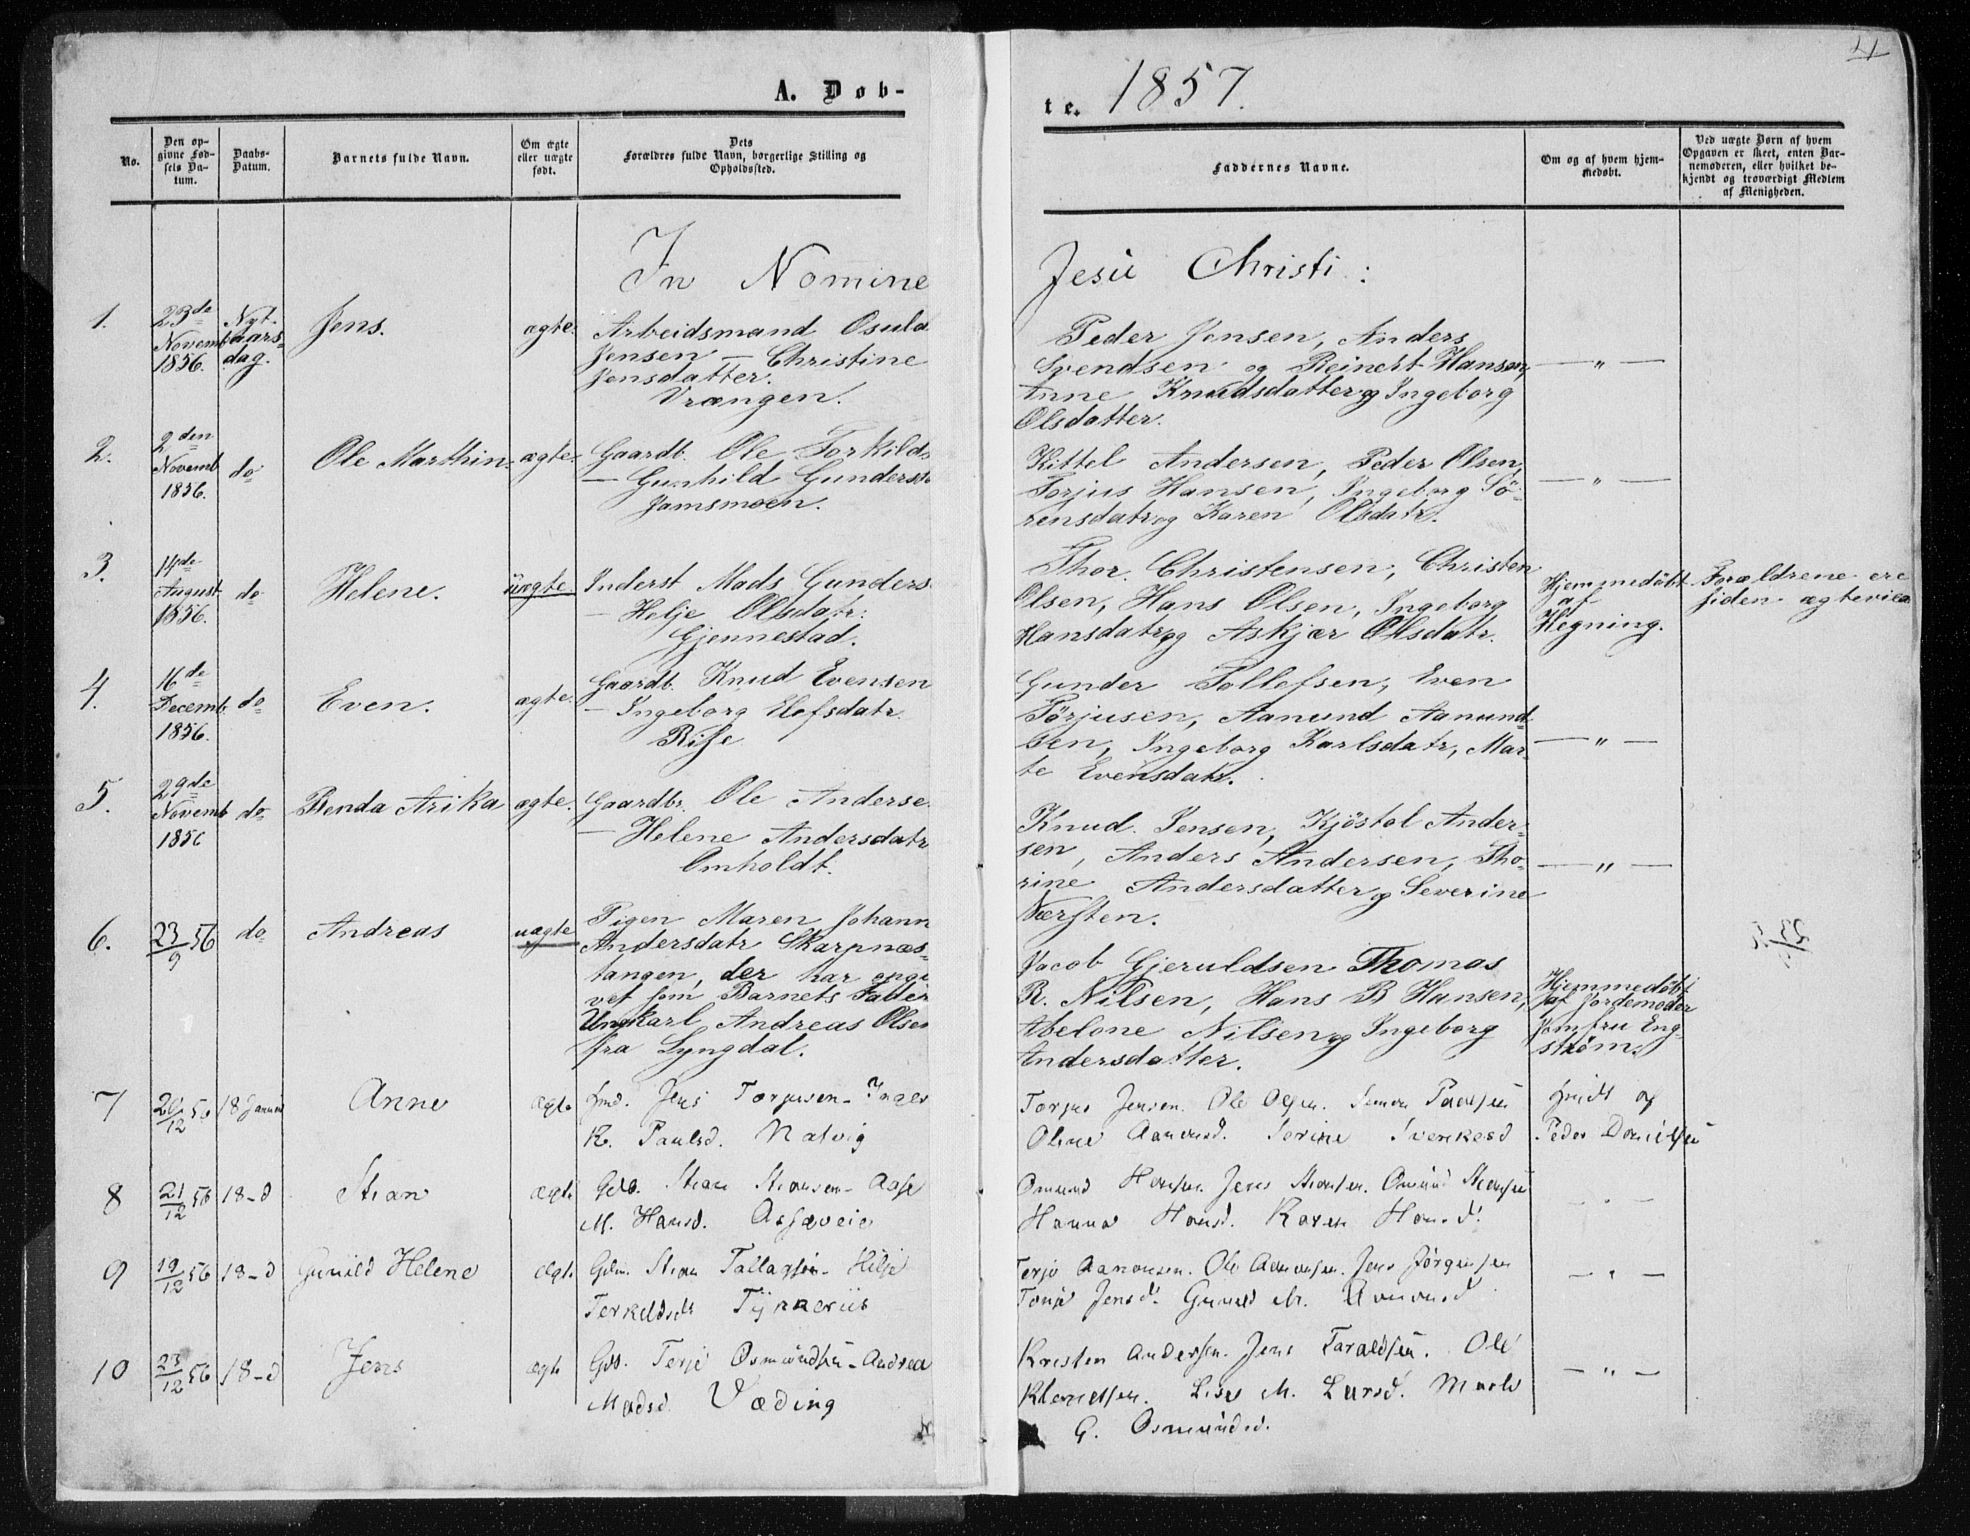 A. Døb-
te. 1857.
4
No.
Den op-
givne Fød-
sels Da-
tum.
Daabs-
Datum.
Barnets fulde Navn.
Om ægte
eller uægte
født.
Dets
Forældres fulde Navn, borgerlige Stilling og
Opholdssted.
Faddernes Navne.
Om og af hvem hjem-
medøbt.
Ved uægte Børn af hvem
Opgaven er skeet, enten Bar-
nemoderen, eller hvilket be-
kjendt og troværdigt Medlem
af Menigheden.
In Nomine Jesu Christi:
1.
23de
Novemb
1856.
Nyt-
aars-
dag.
Jens.
ægte.
Arbeidsmand Osuld
Jensen — Christine
Jensdatter.
Vrængen.
Peder Jensen, Anders
Svendsen og Reinert Hansen,
Anne Knudsdatter og Ingeborg
Olsdatter.
— " —
2.
2den
Novemb
1856.
do
Ole Marthin.
ægte.
Gaardb. Ole Torkilds
— Gunhild Gunders
Jamsmoen.
Kittel Andersen, Peder Olsen,
Torjus Hansen, Ingeborg Sö-
rensdatr og Karen Olsdatr.
— " —
3.
14de
August
1856.
do
Helene.
üægte.
Inderst Mads Gunders
— Helje Olsdatr:
Gjennestad.
Thor Christensen, Christen
Olsen, Hans Olsen, Ingeborg
Hansdatr og Askjær Olsdatr.
Hjemmedöbt
af
Hegning.
Forældrene ere
siden ægteviede
4.
16de
Decemb.
1856.
do
Even.
ægte.
Gaardb. Knud Evensen
— Ingeborg Elefsdatr.
Rise
Gunder Tollefsen, Even
Törjusen, Aanund Aanund-
sen, Ingeborg Karlsdatr, Mar-
te Evensdatr.
— " —
5.
29de
Novemb
1856
do
Benda Arika
ægte.
Gaardbr. Ole Anderse
— Helene Andersdatr
Omholdt.
Knud Jensen, Kjöstol Ander-
sen, Anders Andersen, Tho-
rine Andersdatter og Severine
Næsten.
— " —
6.
23/9 56
do
Andreas
uægte
Pigen Maren Johann
Andersdatr Skarpnæs-
tangen, der har opgi
vet som Barnets Fader
Ungkarl Andreas Olsen
fra Lyngdal.
Jacob Gjeruldsen Thomas
R. Nilsen, Hans B Hansen,
Abelone Nilsen og Ingeborg
Andersdatter.
Hjemmedöbt
af Jordemoder
Jomfru Eng-
ström.
7
20/12 56
18 Januar
Anne
ægte
Jens Torjusen - Inger
K. Paulsd. Natvig
Torjus Jensen. Ole Olsen.
Oline Aanonsd. Serine
og
Peder Danielsen
8
21/12 56
18-d
Stian
ægte
Gdb. Stian Stiansen - Aase
M. Hansd.
Osmund Hansen. Jens Stiansen. Osmund Stiansen
Hanna Hansd. Karen Hansd.
— " —
9
19/12 56
18-d
Gunild Helene
ægte
Stian Tallagsen - Hilje
Terkeldsdt.
Terje Aanonsen. Ole Aanonsen. Jens Jørgensen
Tonje Jensd. Gunild M.
— " —
10
23/12 56
18-d
Jens
ægte
Gdb. Terje Osmundsen - Andrea
Madsd. Væding
Kristen Andersen. Jens Taraldsen. Ole
Klemetsen. Lise M. Larsd.
G. Osmundsd.
— " —